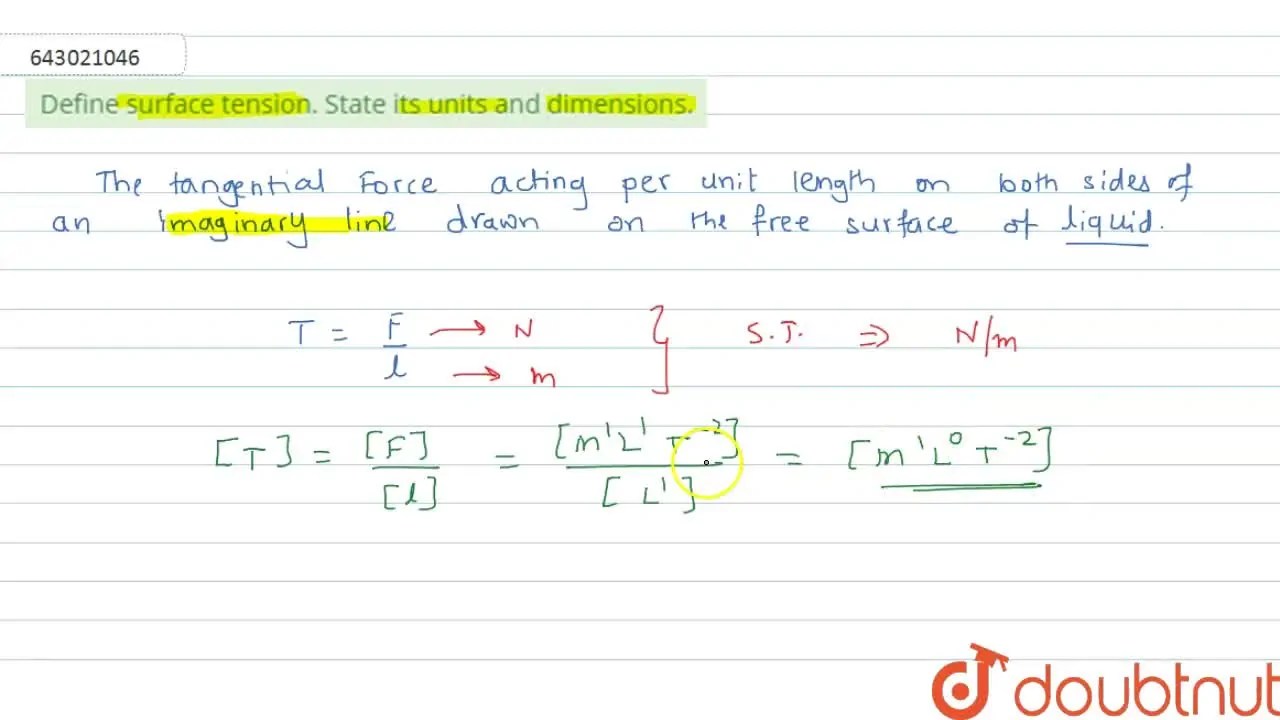 643021046
Define surface tension. State its units and dimensions.
The tangential Force acting per unit length on both sides of
an imaginary line drawn on the free surface of liquid.
T = F/l → N → m } S.T. ⇒ N/m
[T] = [F]/[l] = [M¹L¹T⁻²]/[L¹] = [M¹L⁰T⁻²]
doubtnut